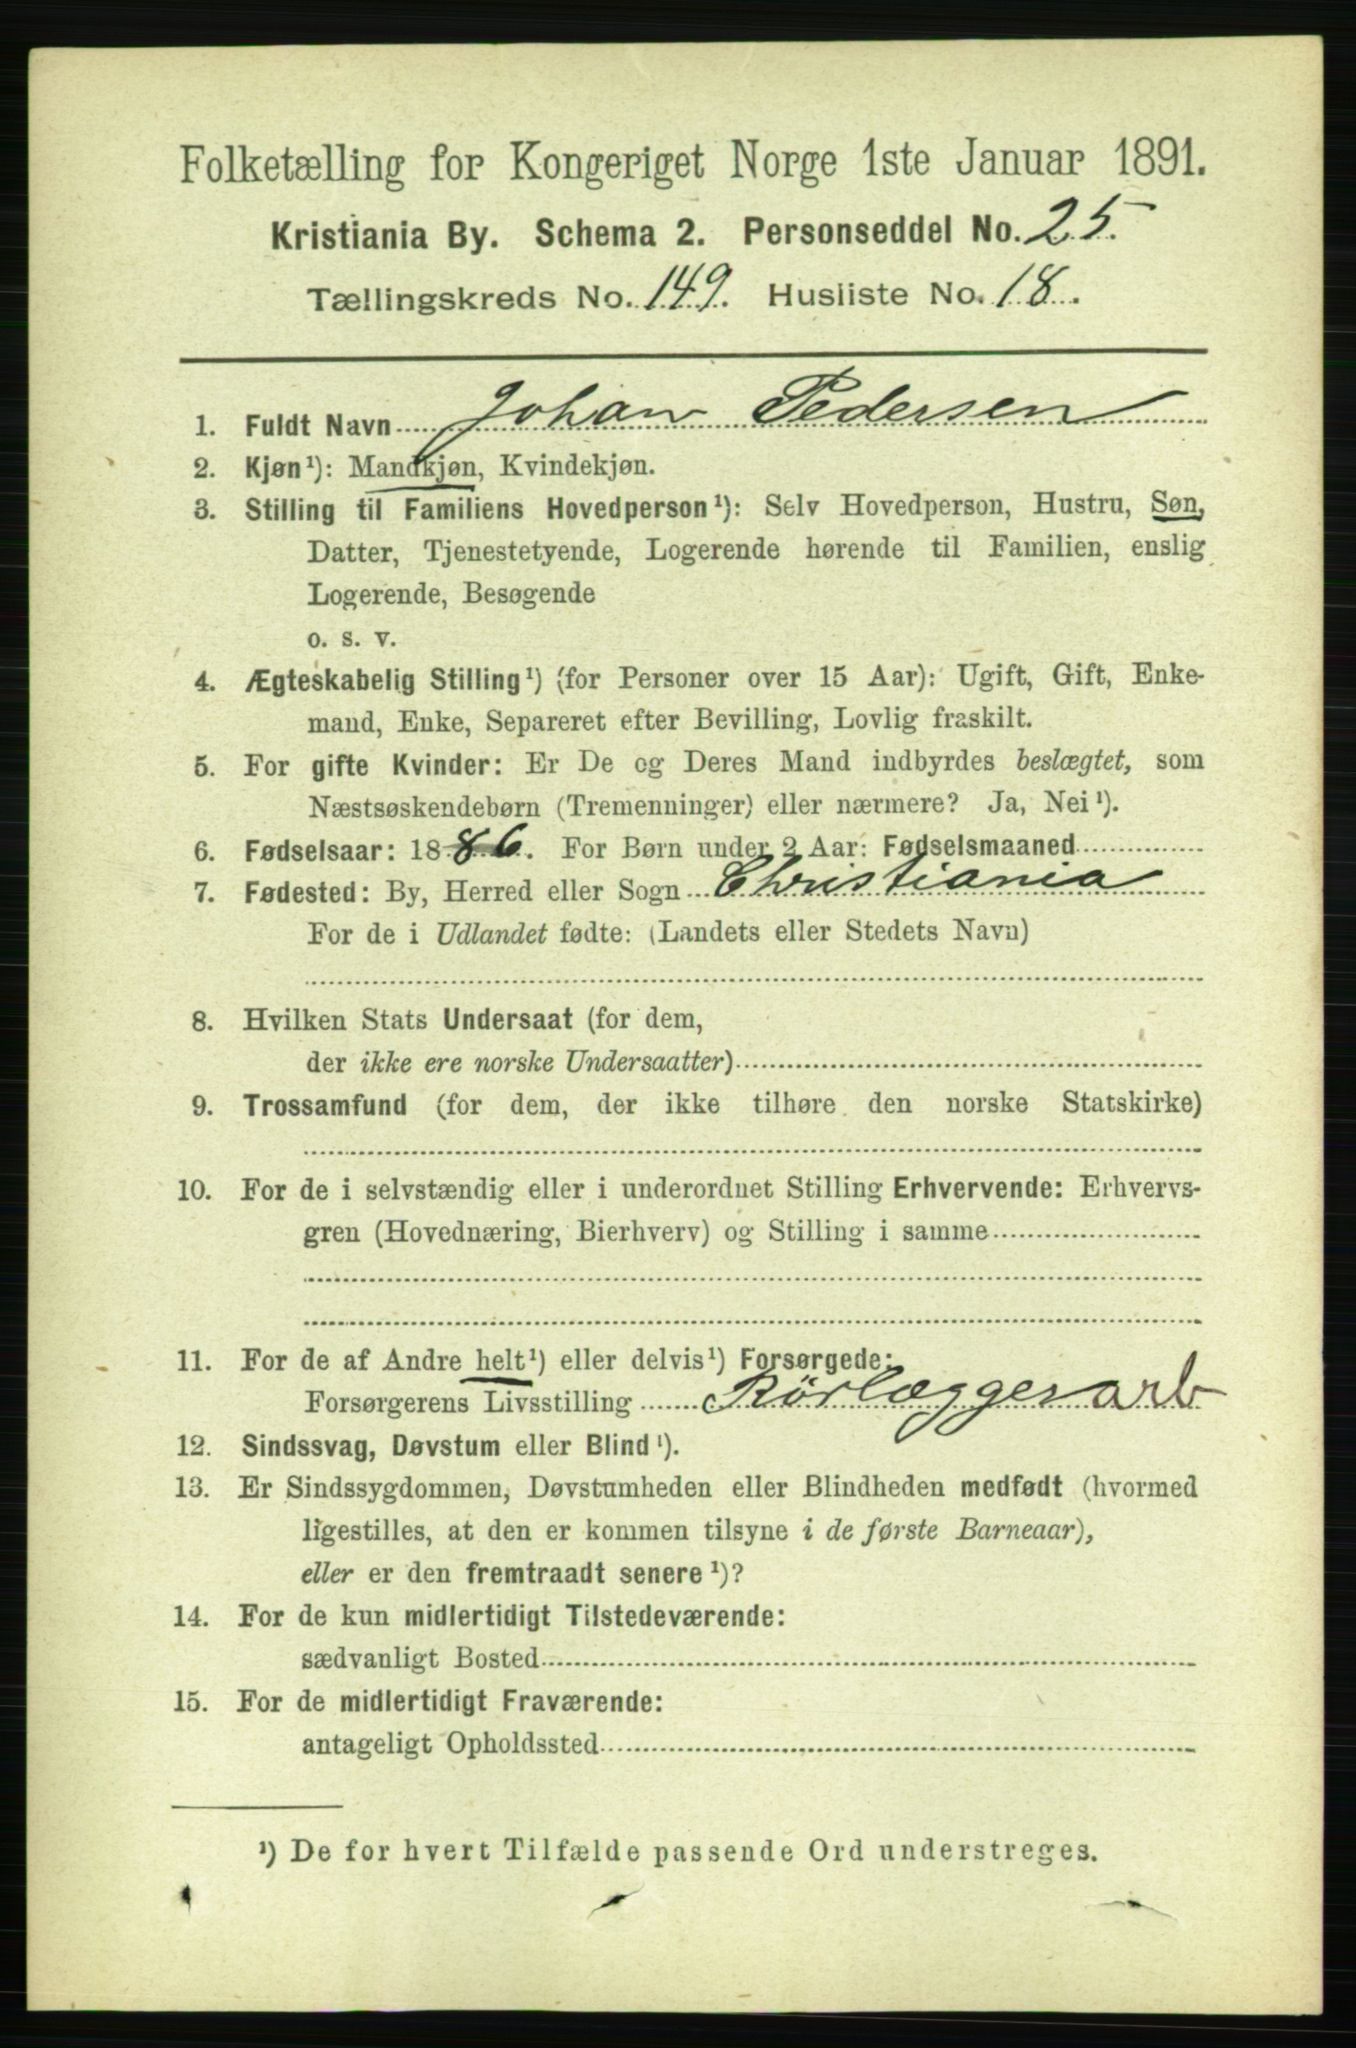 Folketælling for Kongeriget Norge 1ste Januar 1891.
Kristiania By. Schema 2. Personseddel No. 25.
Tællingskreds No. 149. Husliste No. 18.
1. Fuldt Navn Johan Pedersen
2. Kjøn¹): Mandkjøn, Kvindekjøn.
3. Stilling til Familiens Hovedperson¹): Selv Hovedperson, Hustru, Søn,
Datter, Tjenestetyende, Logerende hørende til Familien, enslig
Logerende, Besøgende
o. s. v.
4. Ægteskabelig Stilling¹) (for Personer over 15 Aar): Ugift, Gift, Enke-
mand, Enke, Separeret efter Bevilling, Lovlig fraskilt.
5. For gifte Kvinder: Er De og Deres Mand indbyrdes beslægtet, som
Næstsøskendebørn (Tremenninger) eller nærmere? Ja, Nei¹).
6. Fødselsaar: 1886. For Børn under 2 Aar: Fødselsmaaned
7. Fødested: By, Herred eller Sogn Christiania
For de i Udlandet fødte: (Landets eller Stedets Navn)
8. Hvilken Stats Undersaat (for dem,
der ikke ere norske Undersaatter)
9. Trossamfund (for dem, der ikke tilhøre den norske Statskirke)
10. For de i selvstændig eller i underordnet Stilling Erhvervende: Erhvervs-
gren (Hovednæring, Bierhverv) og Stilling i samme
11. For de af Andre helt¹) eller delvis¹) Forsørgede:
Forsørgerens Livsstilling Rörlæggerarb
12. Sindssvag, Døvstum eller Blind¹).
13. Er Sindssygdommen, Døvstumheden eller Blindheden medfødt (hvormed
ligestilles, at den er kommen tilsyne i de første Barneaar),
eller er den fremtraadt senere¹)?
14. For de kun midlertidigt Tilstedeværende:
sædvanligt Bosted
15. For de midlertidigt Fraværende:
antageligt Opholdssted
¹) De for hvert Tilfælde passende Ord understreges.